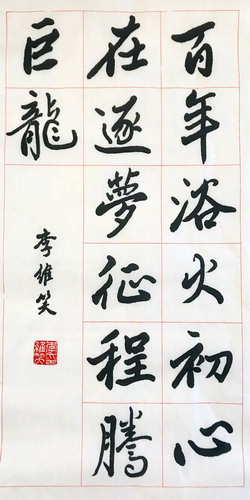 百年浴火初心
在逐夢征程騰
巨龍
李維笑